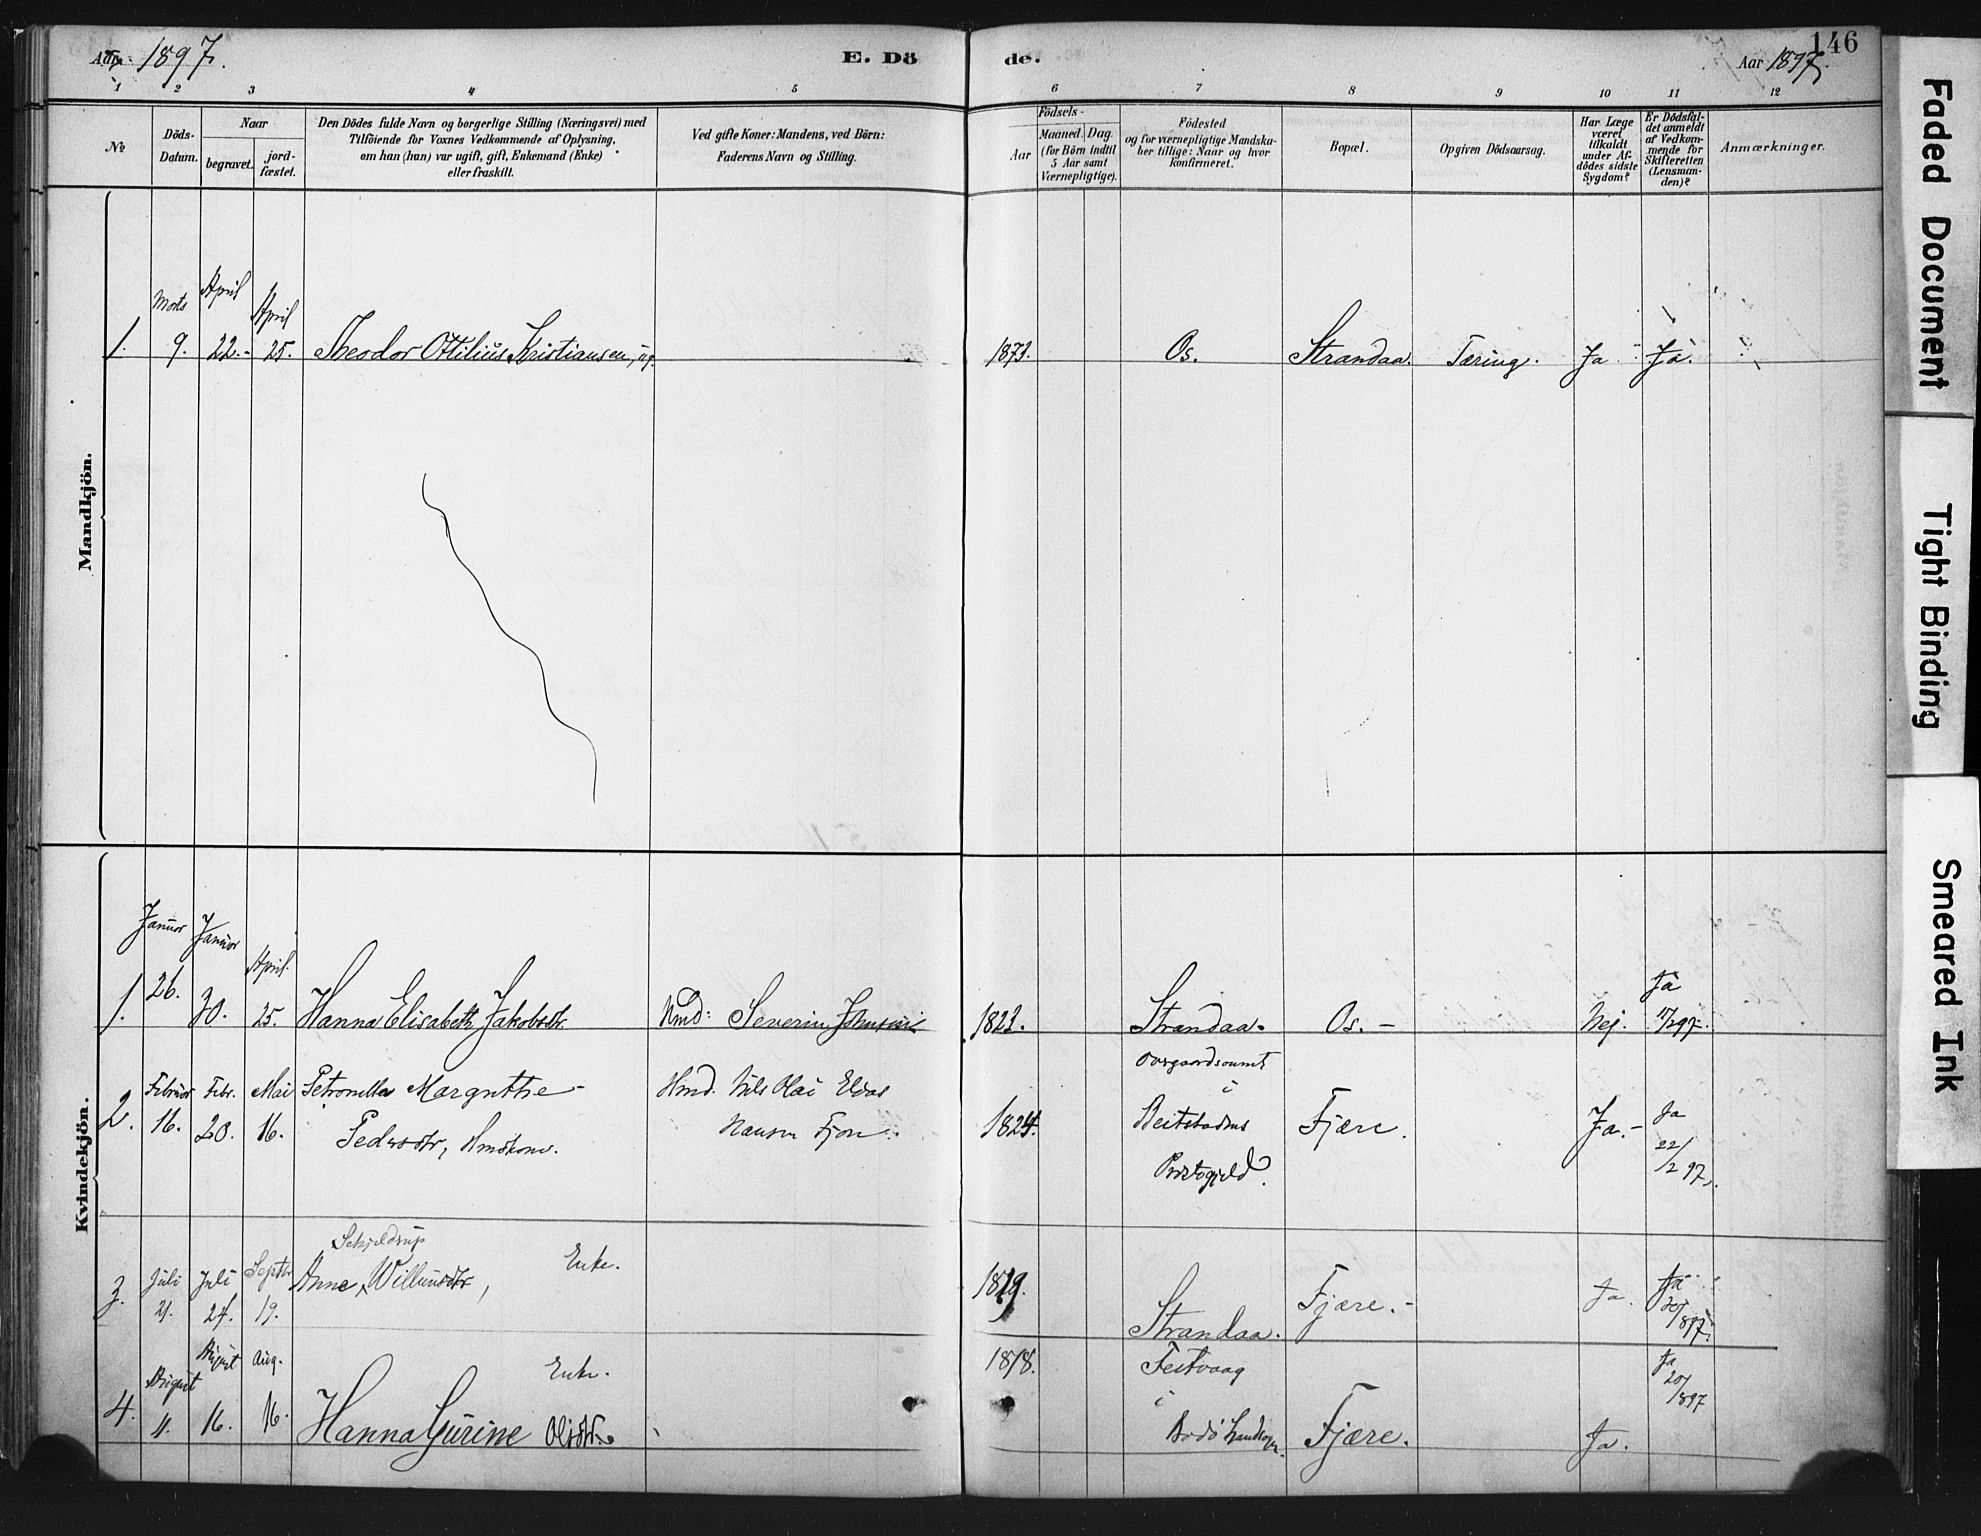 Aar 1897.
E. Dö
de.
Aar 1897.
146
1 2 3 4 5 6 7 8 9 10 11 12
No
Döds-
Datum.
Naar
begravet.
jord-
fæstet.
Den Dödes fulde Navn og borgerlige Stilling (Næringsvei) med
Tilföiende for Voxnes Vedkommende af Oplysning,
om han (hun) var ugift, gift, Enkemand (Enke)
eller fraskilt.
Ved gifte Koner: Mandens, ved Börn:
Faderens Navn og Stilling.
Födsels-
Aar
Maaned. Dag.
(for Börn indtil
5 Aar samt
Værnepligtige).
Födested
og for værnepligtige Mandska-
ber tillige: Naar og hvor
konfirmeret.
Bopæl.
Opgiven Dödsaarsag.
Har Læge
været
tilkaldt
under Af-
dödes sidste
Sygdom?
Er Dödsfal-
det anmeldt
af Vedkom-
mende for
Skifteretten
(Lensman-
den)?
Anmærkninger.
Mandkjön.
Marts April April
1. 9. 22. 25. Theodor Ottilius Kristiansen, ug. 1873. Os. Strandaa. Tæring. Ja Ja.
Kvindekjön.
Januar Januar April
1. 26. 30. 25. Hanna Elisabeth Jakobsdtr. Hmd: Severin Johnsen 1822. Strandaa. Os. Nej. Ja
17/2 97.
2. Februar 16. Febr. 20. Mai 16. Petronella Margrethe
Pedersdtr, Hmdkone.
Hmd. Nils Olai Elias
Hansen Fjære
1824.
i
Beitstadens
Præstegjeld.
Fjære.
Ja.
Ja
22/2 97.
Schjeldrup
3. Juli 21. Juli 24. Septbr 19. Anne Willumsdtr, Enke. 1819. Strandaa. Fjære. Ja. Ja
20/8 97.
4. August 11. August 16. Aug. 16. Hanna Gurine Olsdtr. Enke. 1818. Festvaag
i
Bodö Landsogn.
Fjære.
Ja.
Ja
20/8 97
Faded Document
Tight Binding
Smeared Ink